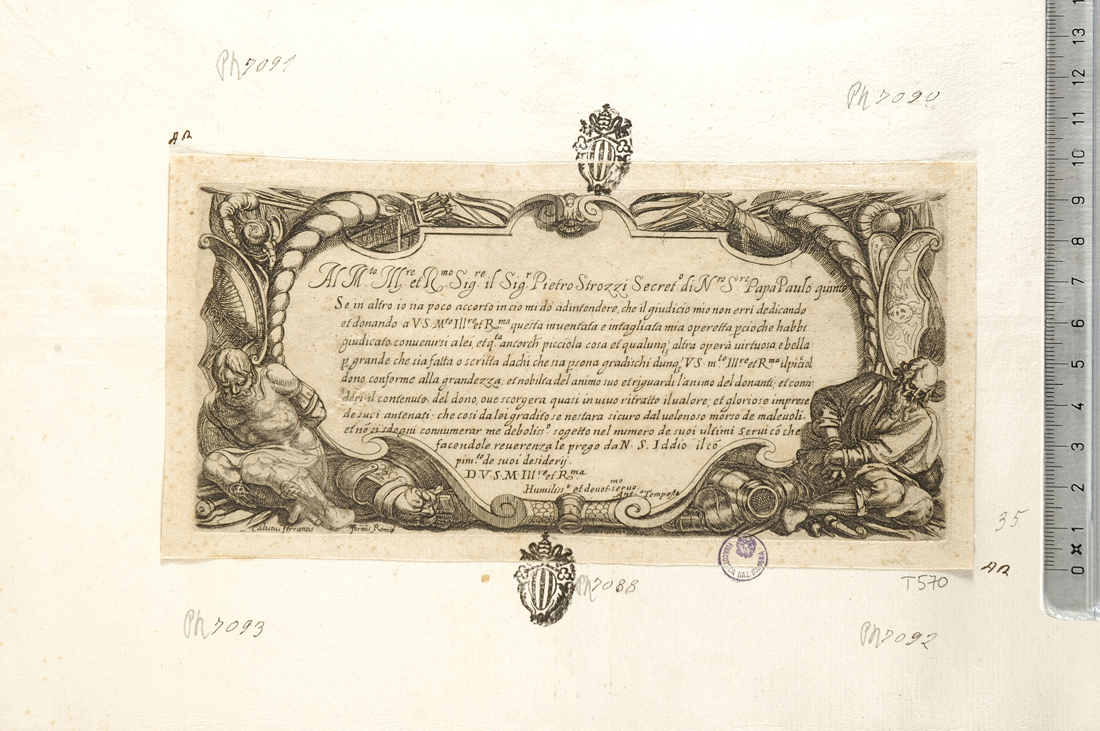 Ph 7091
Ph 7090
AR
Al M.to Ill.re et R.mo Sig.re il Sig.r Pietro Strozzi Secret.o di N.ro S.re Papa Paulo quinto
Se in altro io sia poco accorto in cio mi do adintendere, che il giudicio mio non erri dedicando
et donando a V.S.M.to Ill.re et R.ma questa inuentata e intagliata mia operetta pcioche habbi
giudicato conuenirsi a lei, et q.ta ancorch picciola cosa et qualunq; altra opera virtuosa, e bella
p grande che sia fatta o scritta da chi che sia psona gradischi dunq; V.S. m.to Ill.re et R.ma il picciol
dono conforme alla grandezza, et nobilta del animo suo et riguardi l'animo del donanti, et consi
deri il contenuto del dono, oue scorgera quasi in uiuo ritratto il ualore, et gloriose imprese
de suoi antenati, che cosi da lei gradito se nestara sicuro dal uelenoso morso de maleuoli.
et nō si sdegni connumerar me debolis.o sogetto nel numero de suoi ultimi serui cō che
facendole reuerenza le prego da N. S. Iddio il cō
pim.to de suoi desiderij.
D.V.S.M.Ill.re et R.ma
Humiliss.o et deuot.mo seruo.
Ant.o Tempesta
Calistus ferrantis formis Romae
35
AR
PINACOTECA NAZ. BOLOGNA
Ph 7088
T570
Ph 7093
Ph 7092
0 1 2 3 4 5 6 7 8 9 10 11 12 13